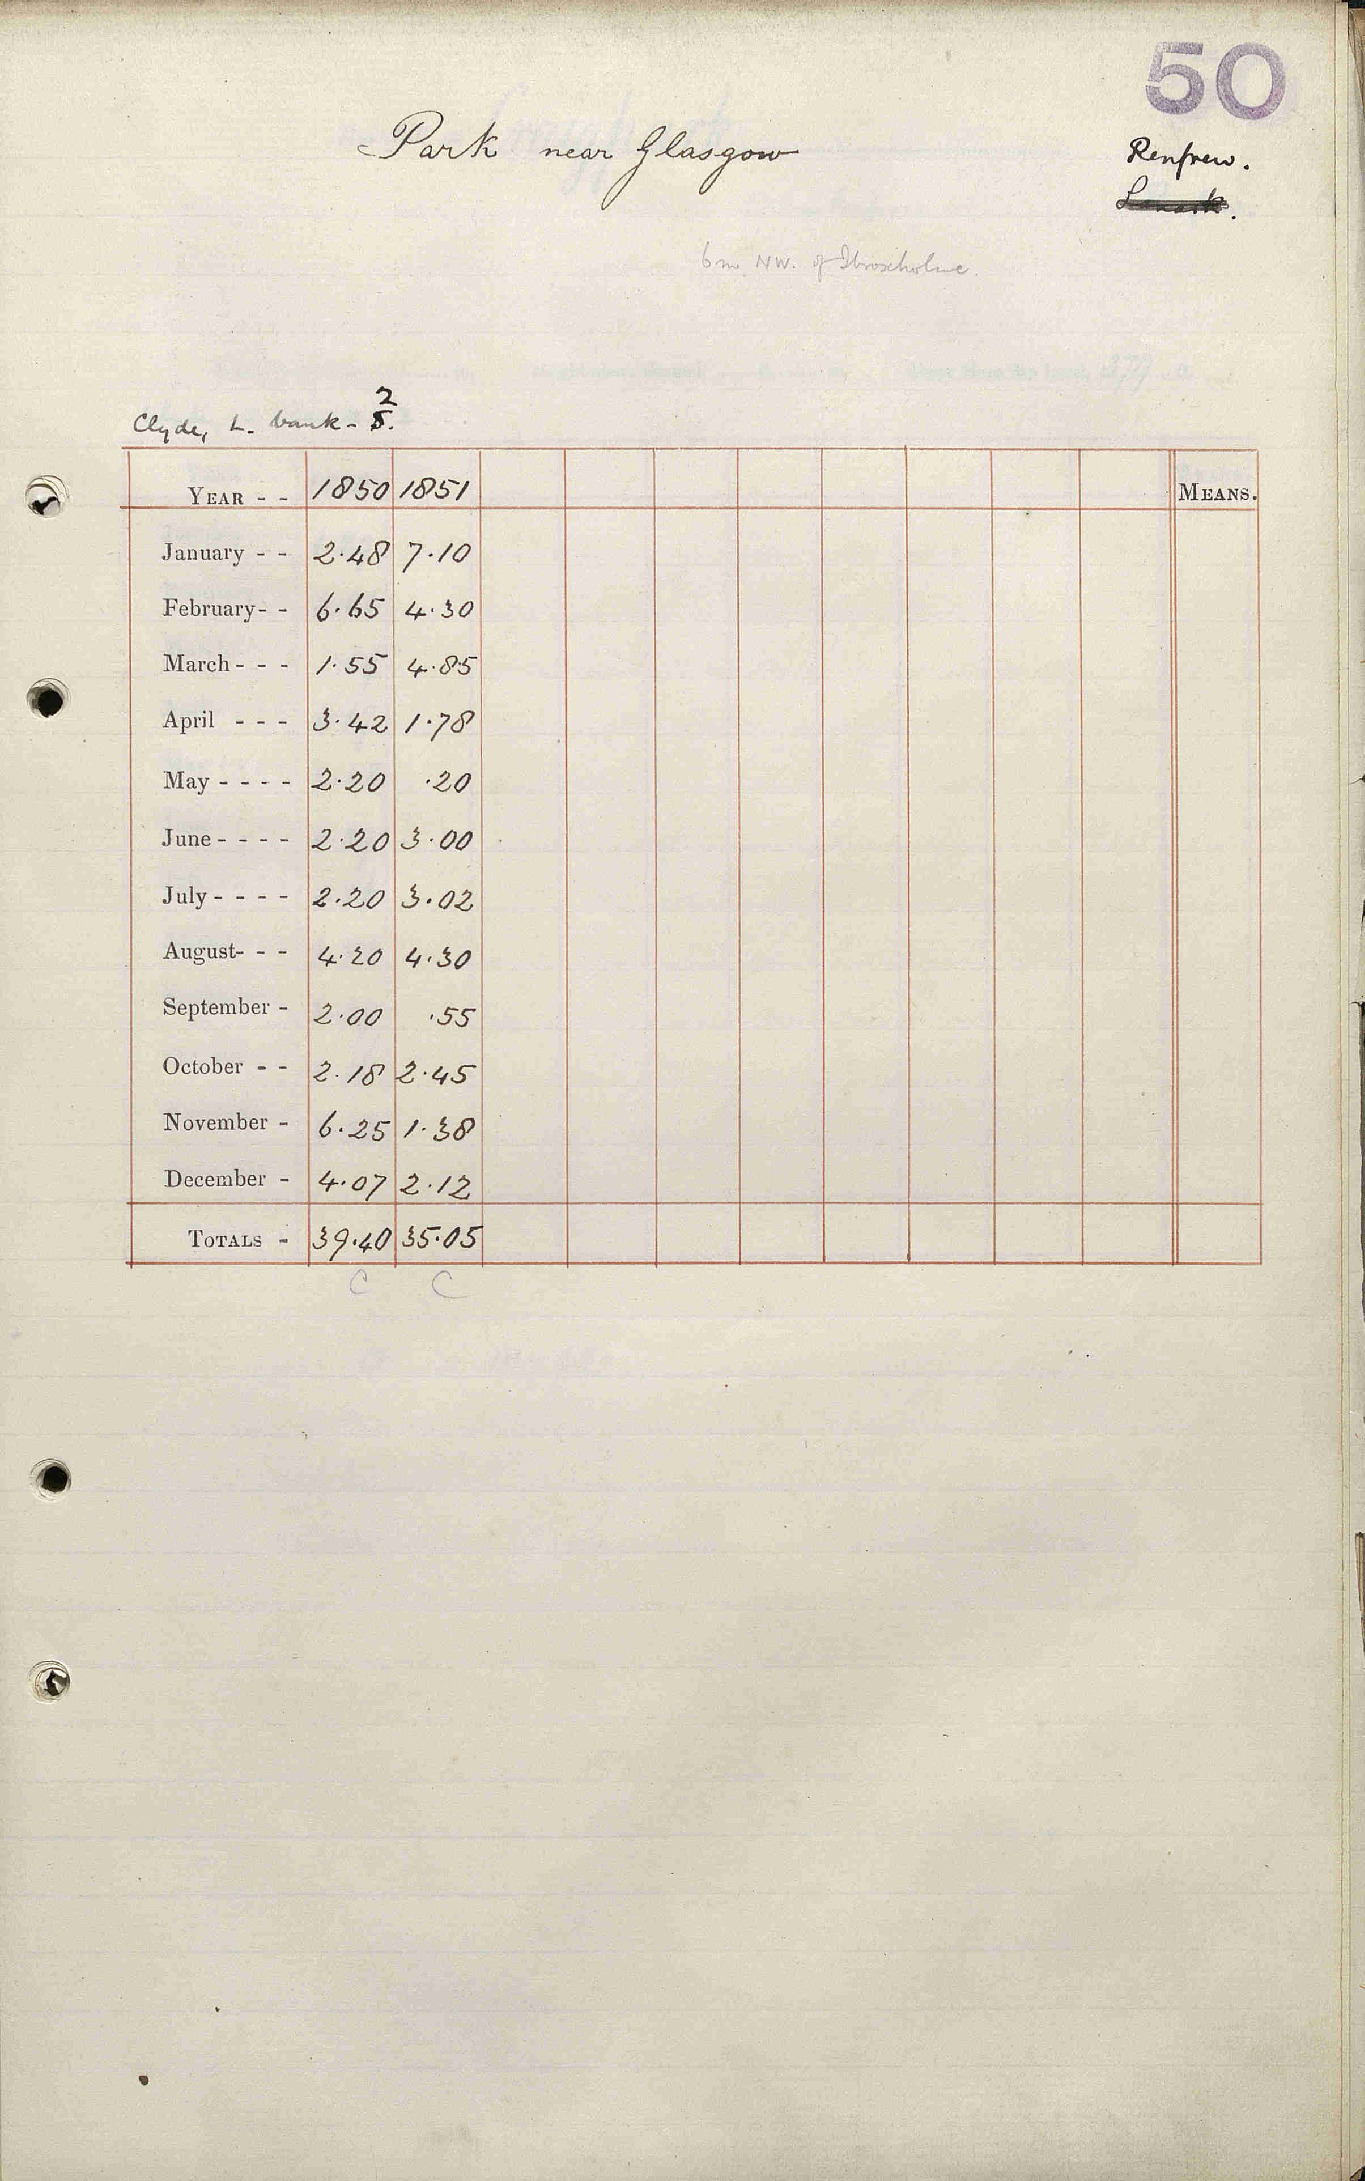 50
Park near Glasgow
Renfrew.
Lanark.
6m. NW. of Ibroxholme.
2
Clyde, L. bank - 5.
YEAR - - 1850 1851 MEANS.
January - - 2·48 7·10
February - - 6·65 4·30
March - - - 1·55 4·85
April - - - 3·42 1·78
May - - - - 2·20 ·20
June - - - - 2·20 3·00
July - - - - 2·20 3·02
August - - - 4·20 4·30
September - 2·00 ·55
October - - 2·18 2·45
November - 6·25 1·38
December - 4·07 2·12
TOTALS - 39·40 35·05
C C